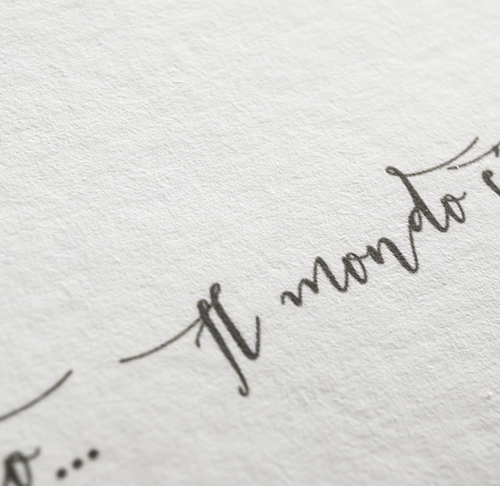 Il mondo
...